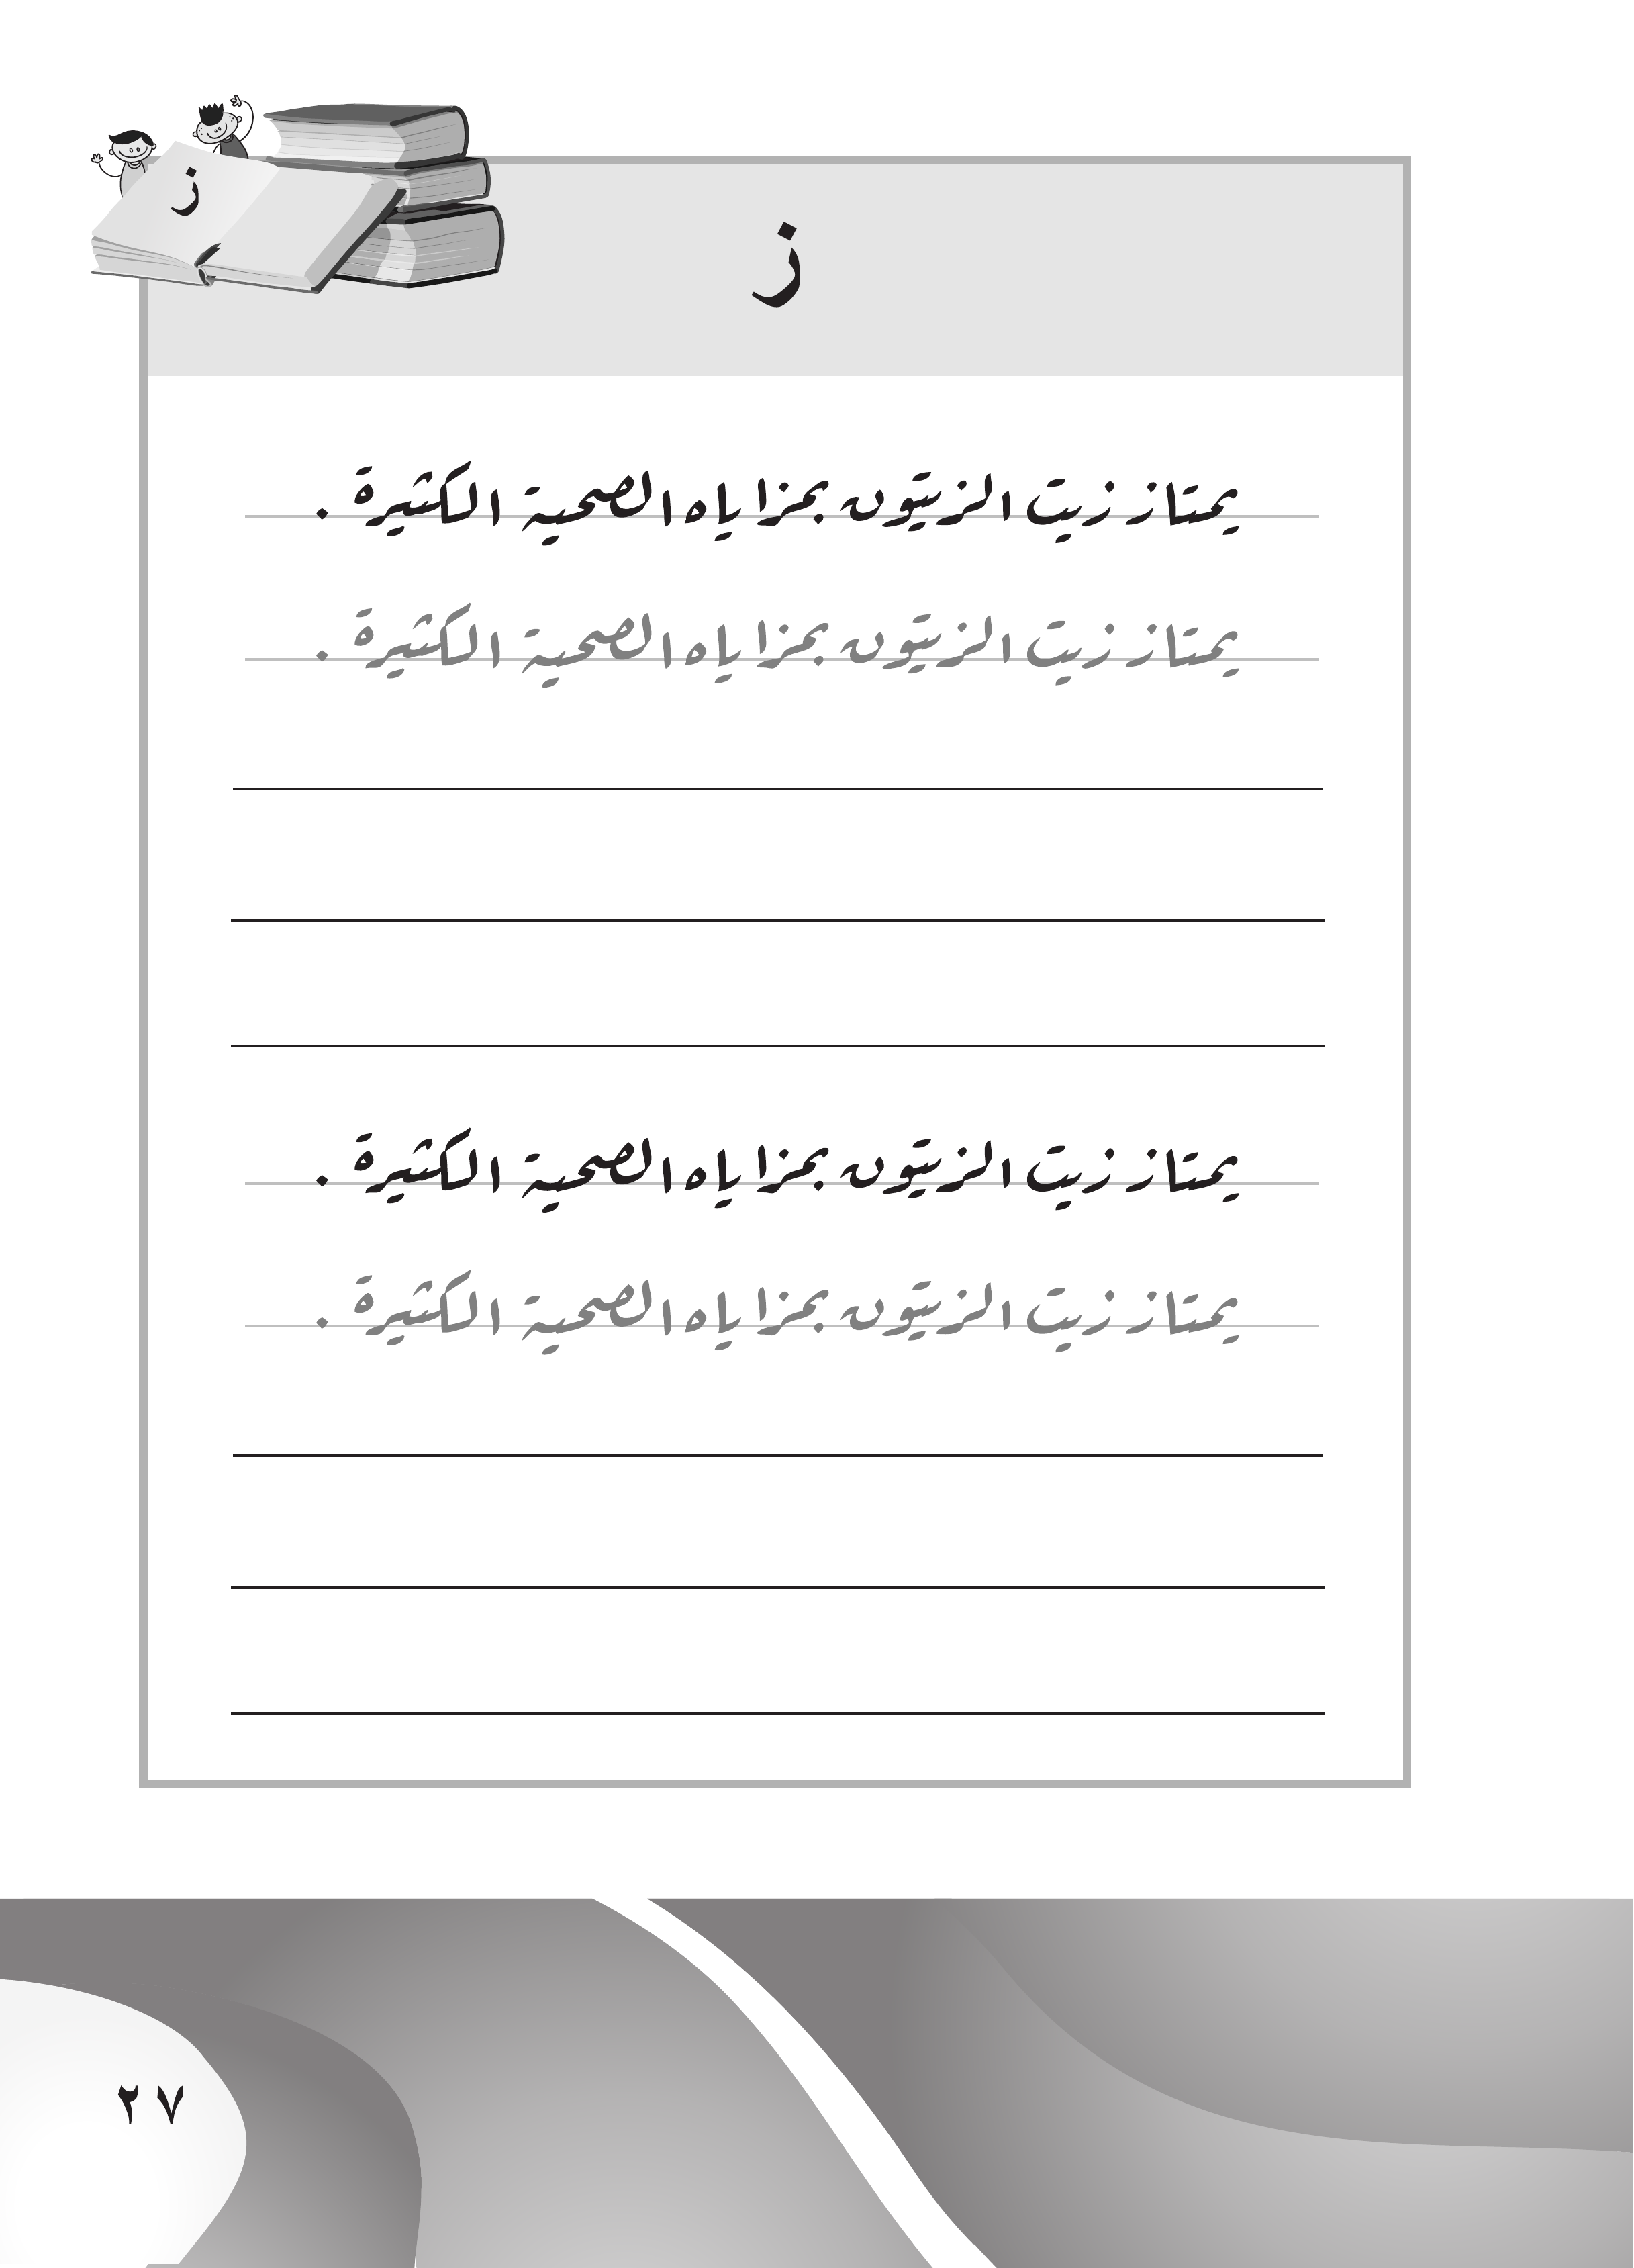 ز
ز
يمتاز زيت الزيتون بمزاياه الصحية الكثيرة .
يمتاز زيت الزيتون بمزاياه الصحية الكثيرة .
يمتاز زيت الزيتون بمزاياه الصحية الكثيرة .
يمتاز زيت الزيتون بمزاياه الصحية الكثيرة .
٢٧